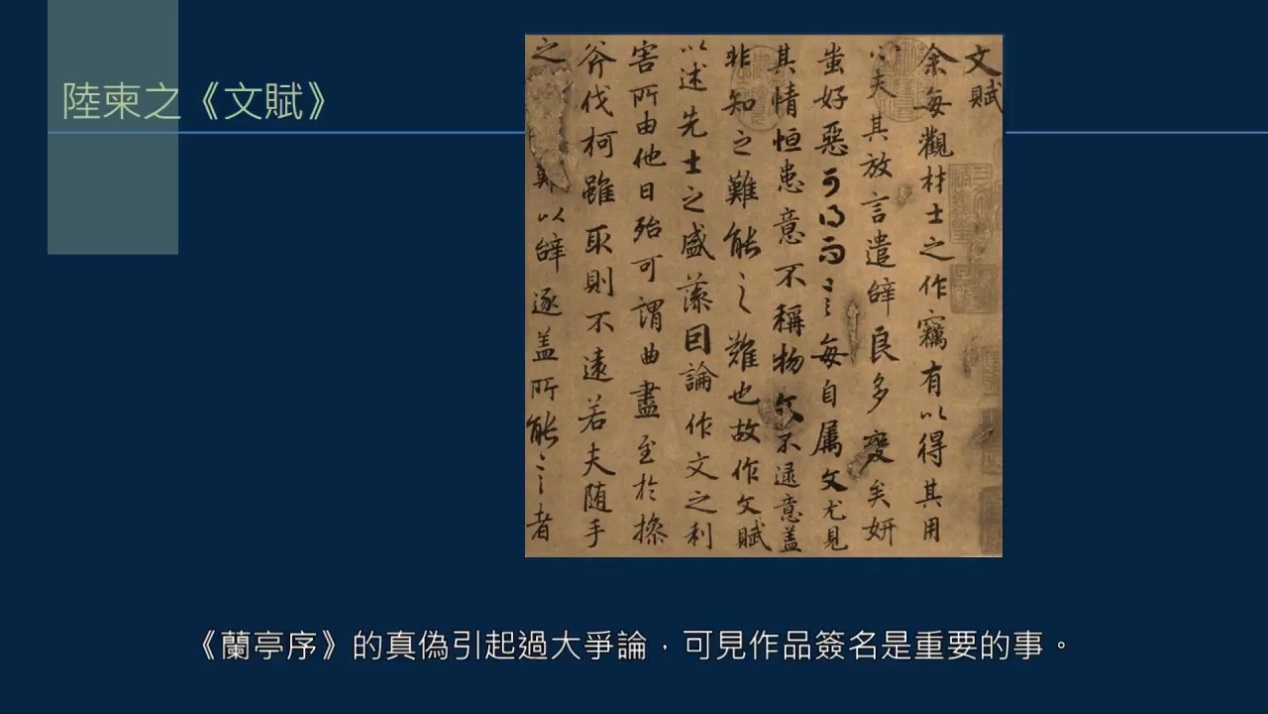 陸柬之《文賦》
文賦
余每觀材士之作竊有以得其用
心夫其放言遣辭良多變矣妍
蚩好惡可得而言每自属文尤見
其情恒患意不稱物文不逮意蓋
非知之難能之難也故作文賦
以述先士之盛藻因論作文之利
害所由他日殆可謂曲盡至於操
斧伐柯雖取則不遠若夫随手
之 以辭逐盖所能言者
《蘭亭序》的真偽引起過大爭論，可見作品簽名是重要的事。